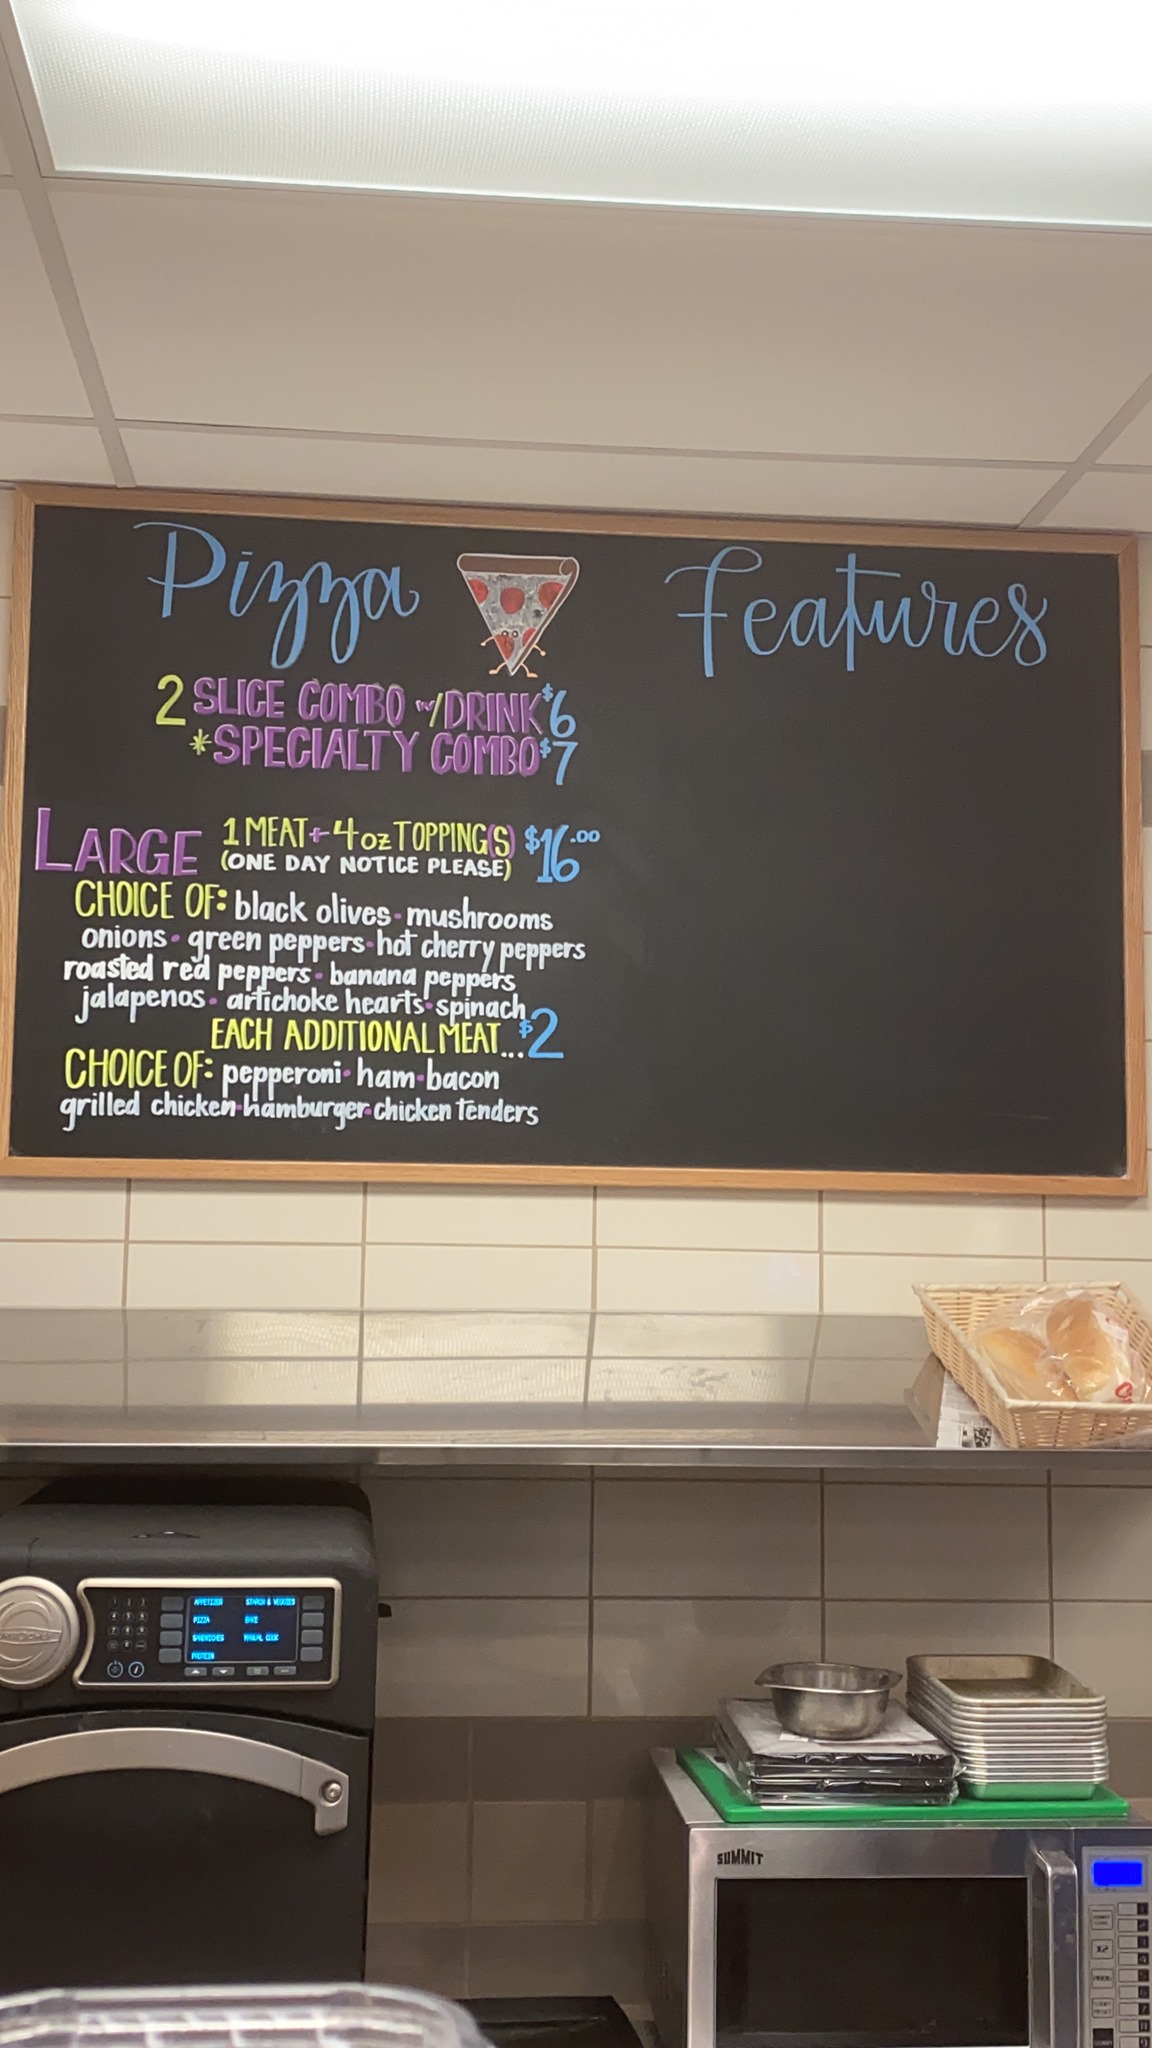 Pizza
Features
2 SLICE COMBO w/DRINK $6
*SPECIALTY COMBO $7
LARGE 1 MEAT + 4 oz TOPPING(S) $16.00
(ONE DAY NOTICE PLEASE)
CHOICE OF: black olives • mushrooms
onions • green peppers • hot cherry peppers
roasted red peppers • banana peppers
jalapenos • artichoke hearts • spinach
EACH ADDITIONAL MEAT...$2
CHOICE OF: pepperoni • ham • bacon
grilled chicken • hamburger • chicken tenders
APPETIZER STARCH & VEGGIES
PIZZA BAKE
SANDWICHES MANUAL COOK
PROTEIN
SUMMIT
X2